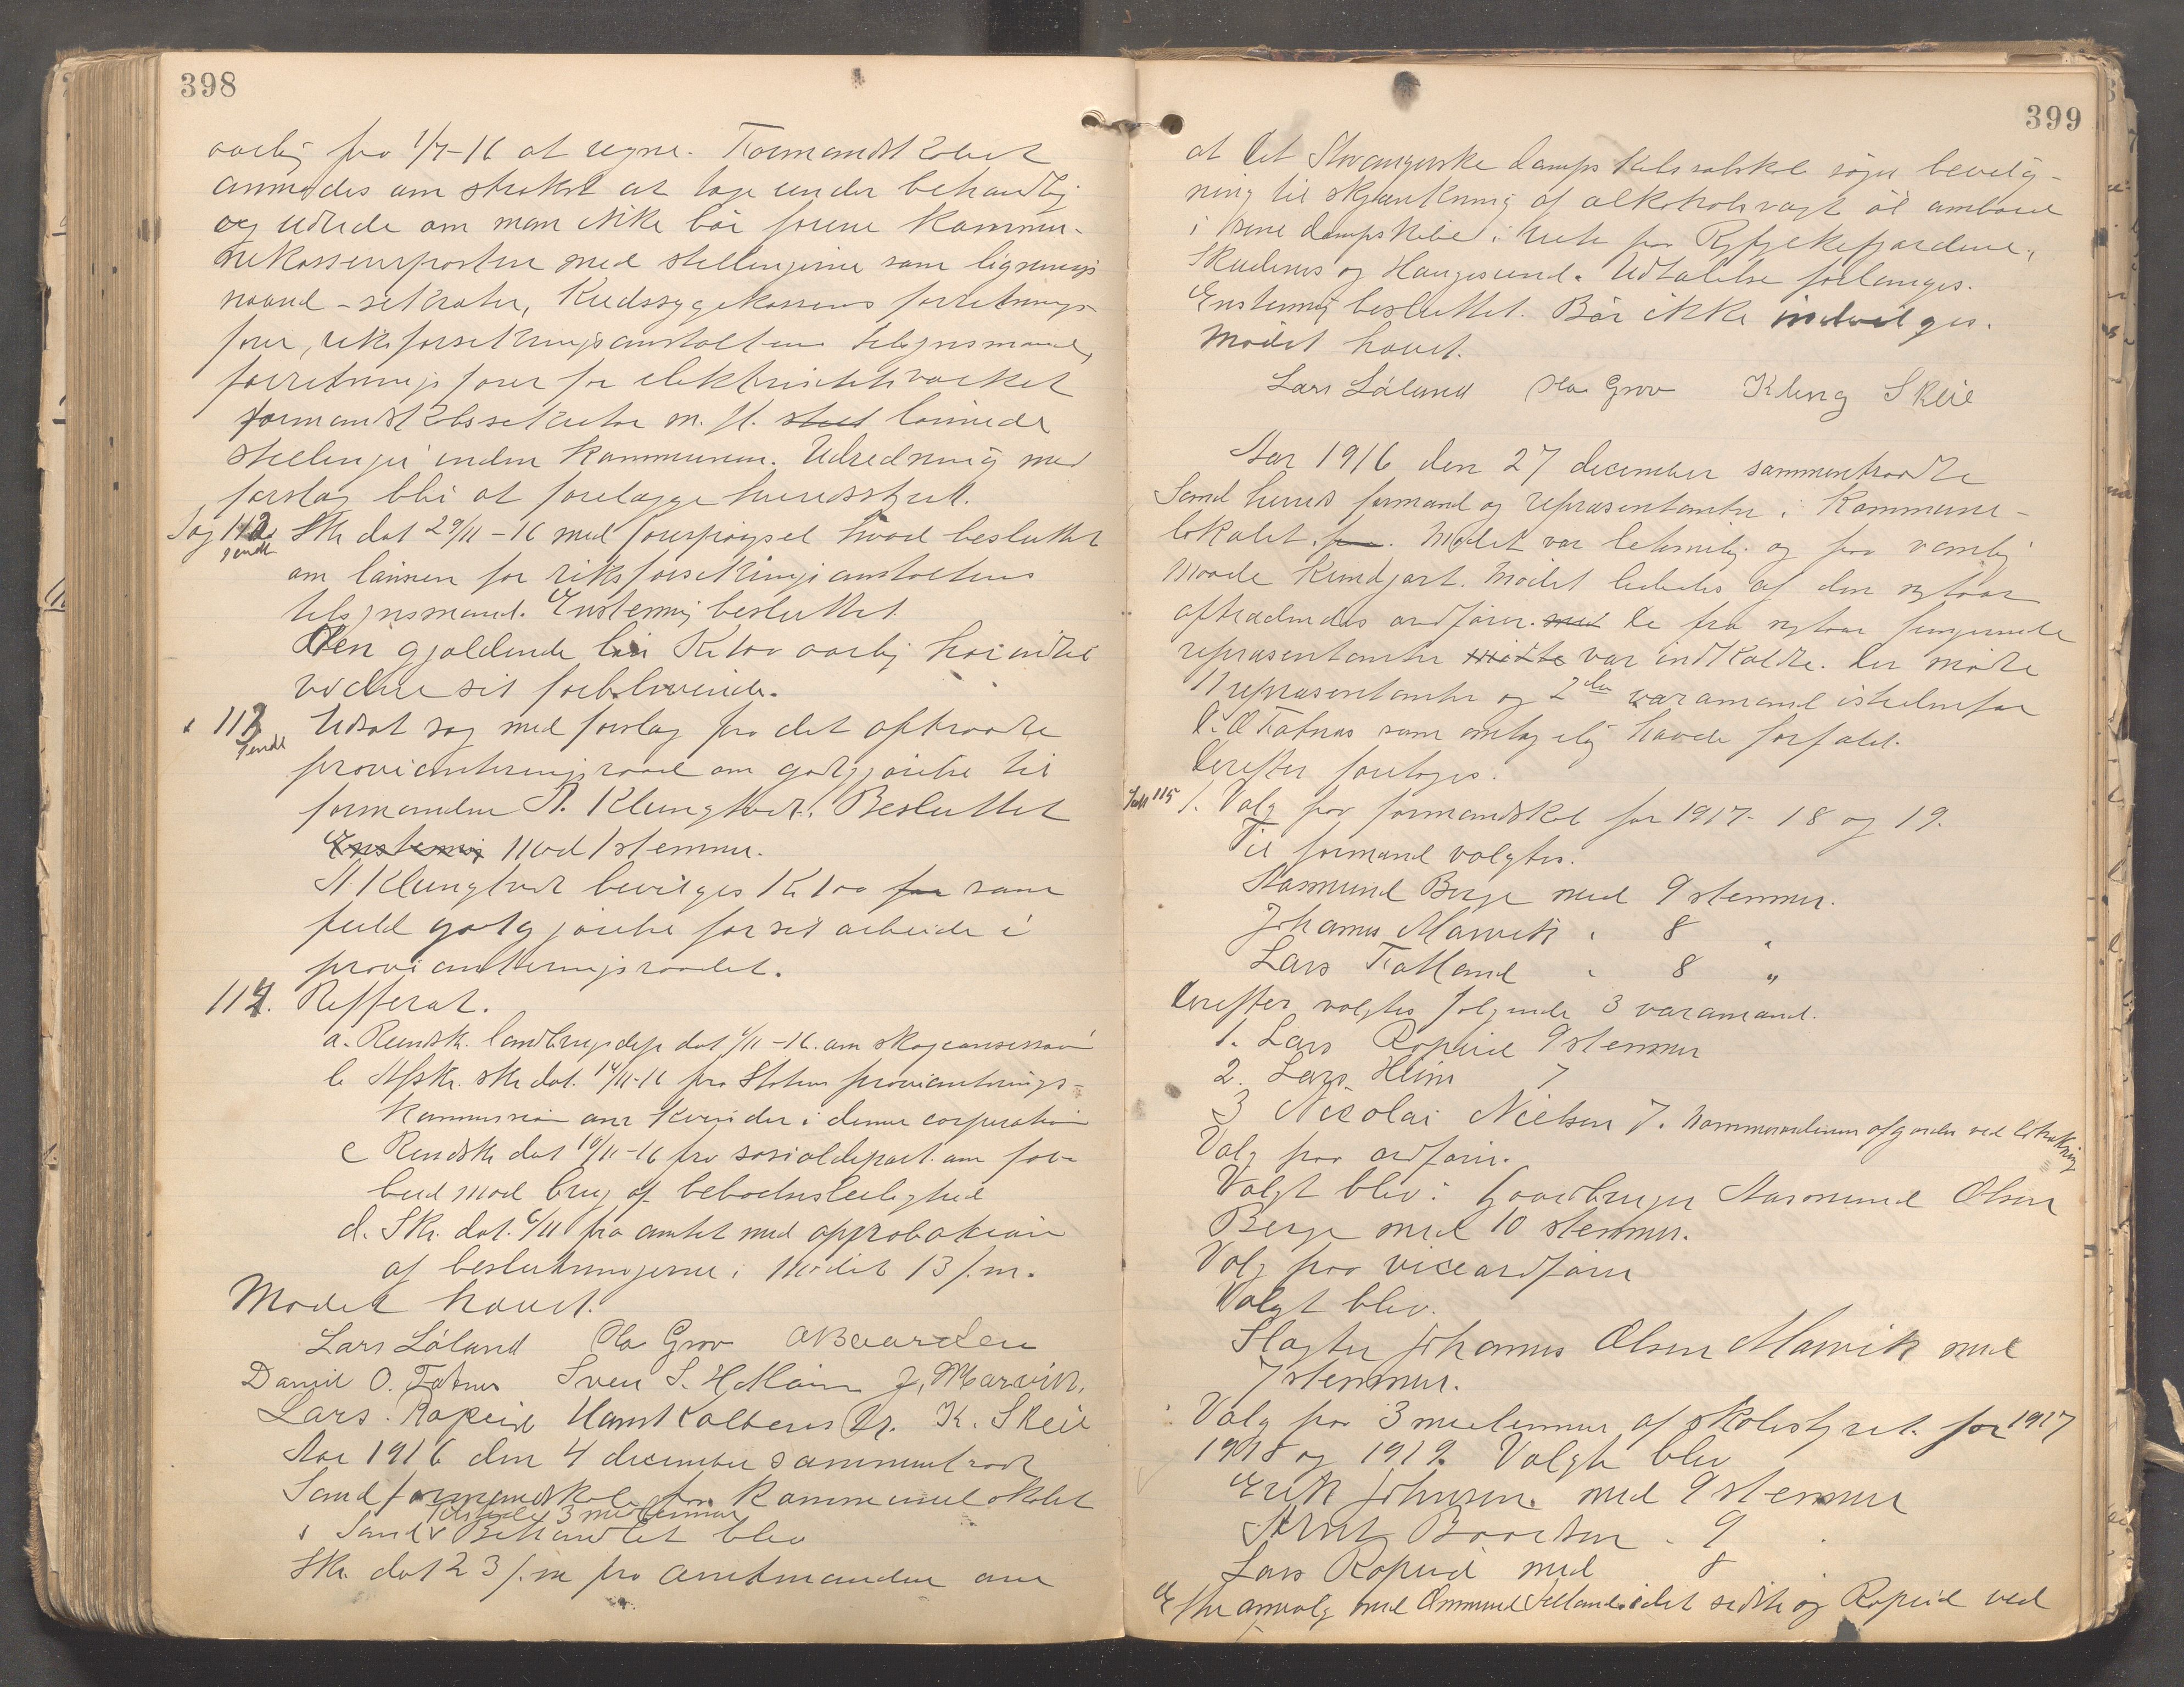 398
aarlig fra 1/7-16 at regne. Formandskabet
anmodes om straks at tage under behandlig
og utrede om man ikke bør forene kommu-
nekasserposten med stellingerne som lignings
raand-sekretær, Kredssygekassens forretnings-
fører, riksforsekringsanstaltens tilsynsmand,
forretningsfører for elektrisitetsværket
formandskabssekretær m. fl. lønnede
stellinger inden kommunen. Udredning med
forslag bli at forelægge herredsstyret.
Sag 112. Skr. dat 29/11-16 med forespørgsel hvad besluttet
sendt
om lønnen for riksforsekringsanstaltens
tilsynsmand. Enstemmig besluttet.
Den gjældende løn Kr 100 aarlig har indtil
videre sit forblivende.
" 113 Utsat sag med forslag fra det aftraadte
sendt
provianteringsraad om godtgjørelse til
formanden A. Klungtvedt. Besluttet
Enstemmig mod 1 stemme.
A Klungtvedt bevilges Kr 100 for som
fuld godtgjørelse for sit arbeide i
provianteringsraadet.
114. Refferat.
a. Rundsk. landbrugsdep dat /11-16. om skogconsession
b Afskr. skr dat. 14/11-16 fra Statens provianterings-
kommission om kvinder i denne corporation
c Rundskr dat 10/11-16 fra sosialdepart. om for-
bud mod brug af beboelsesleilighed
d. Skr. dat. 6/11 fra amtet med approbation
af beslutningerne i mødet 13 f.m.
Mødet hævet.
Lars Løland Ola Grov A Baarden
Daniel O. Fatnes Sven S. J. Marvik,
Lars Ropeid Hans Kolbens K. Skeie
Aar 1916 den 4 december sammentraadt
Sand formandskab paa Kommunelokalet
Tilstede 3 medlemmer
i Sand. Behandlet blev
Skr. dat 23 f.m fra amtmanden om
399
at Det Stavangerske dampskibsselskab søger bevilg-
ning til skjænkning af alkoholsvagt øl ombord
i sine dampskibe i rute paa Ryfylkefjordene,
Skudenes og Haugesund. Udtalelse forlanges.
Enstemmig besluttet. Bør ikke indvilges.
Mødet hævet.
Lars Løland Ola Grov Klung Skeie
Aar 1916 den 27 december sammentraadte
Sand herreds formænd og repræsentanter i Kommune-
lokalet. Mødet var betimelig og paa vanlig
maade kundgjort. Mødet lededes af den nytaar
aftrædendes ordfører. med De fra nytaar fungerende
repræsentanter møtte var indkaldte. Der mødte
11 repræsentanter og 2den varamand istedenfor
D. O Fatnes som antagelig havde forfald.
Derefter foretoges.
Sak 115 1. Valg paa formandskab for 1917- 18 og 19.
Til formænd valgtes.
Aasmund Berge med 9 stemmer.
Johannes Marvik " 8 "
Lars Fatland " 8 "
Derefter valgtes følgende 3 varamænd.
1. Lars Ropeid 9 stemmer
2. Lars Heim 7
3 Nicolai Nielsen 7. Nommerordenen afgjordes ved lodtrækning
Valg paa ordfører.
Valgt blev: Gaardbruger Aasmund Olsen
Berge med 10 stemmer.
Valg paa viceordfører
Valgt blev.
Slagter Johannes Olsen Marvik med
7 stemmer.
Valg paa 3 medlemmer af skolestyret for 1917
1918 og 1919. Valgte blev
Erik Johnsen med 9 stemmer
Baardsen " 9
Lars Ropeid med 8
Efter omvalg med Ommund idet sidste og Ropeid ved